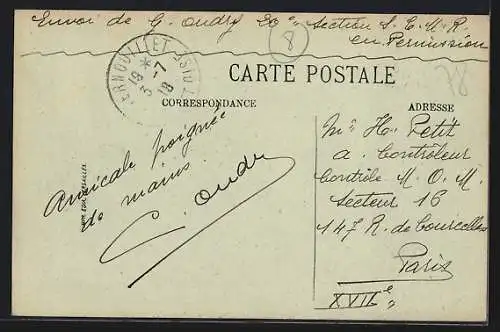 Envoi de G. Oudry 20e Section S. C. M. R.
en Permission
8
78
VERNOUILLET
19 *
3 -7
18
CARTE POSTALE
CORRESPONDANCE
ADRESSE
Amicale poignée
de mains
G. Oudry
Mr H. Petit
a Contrôleur
Contrôle M. O. M.
Secteur 16
147 R. de Courcelles
Paris
XVIIe